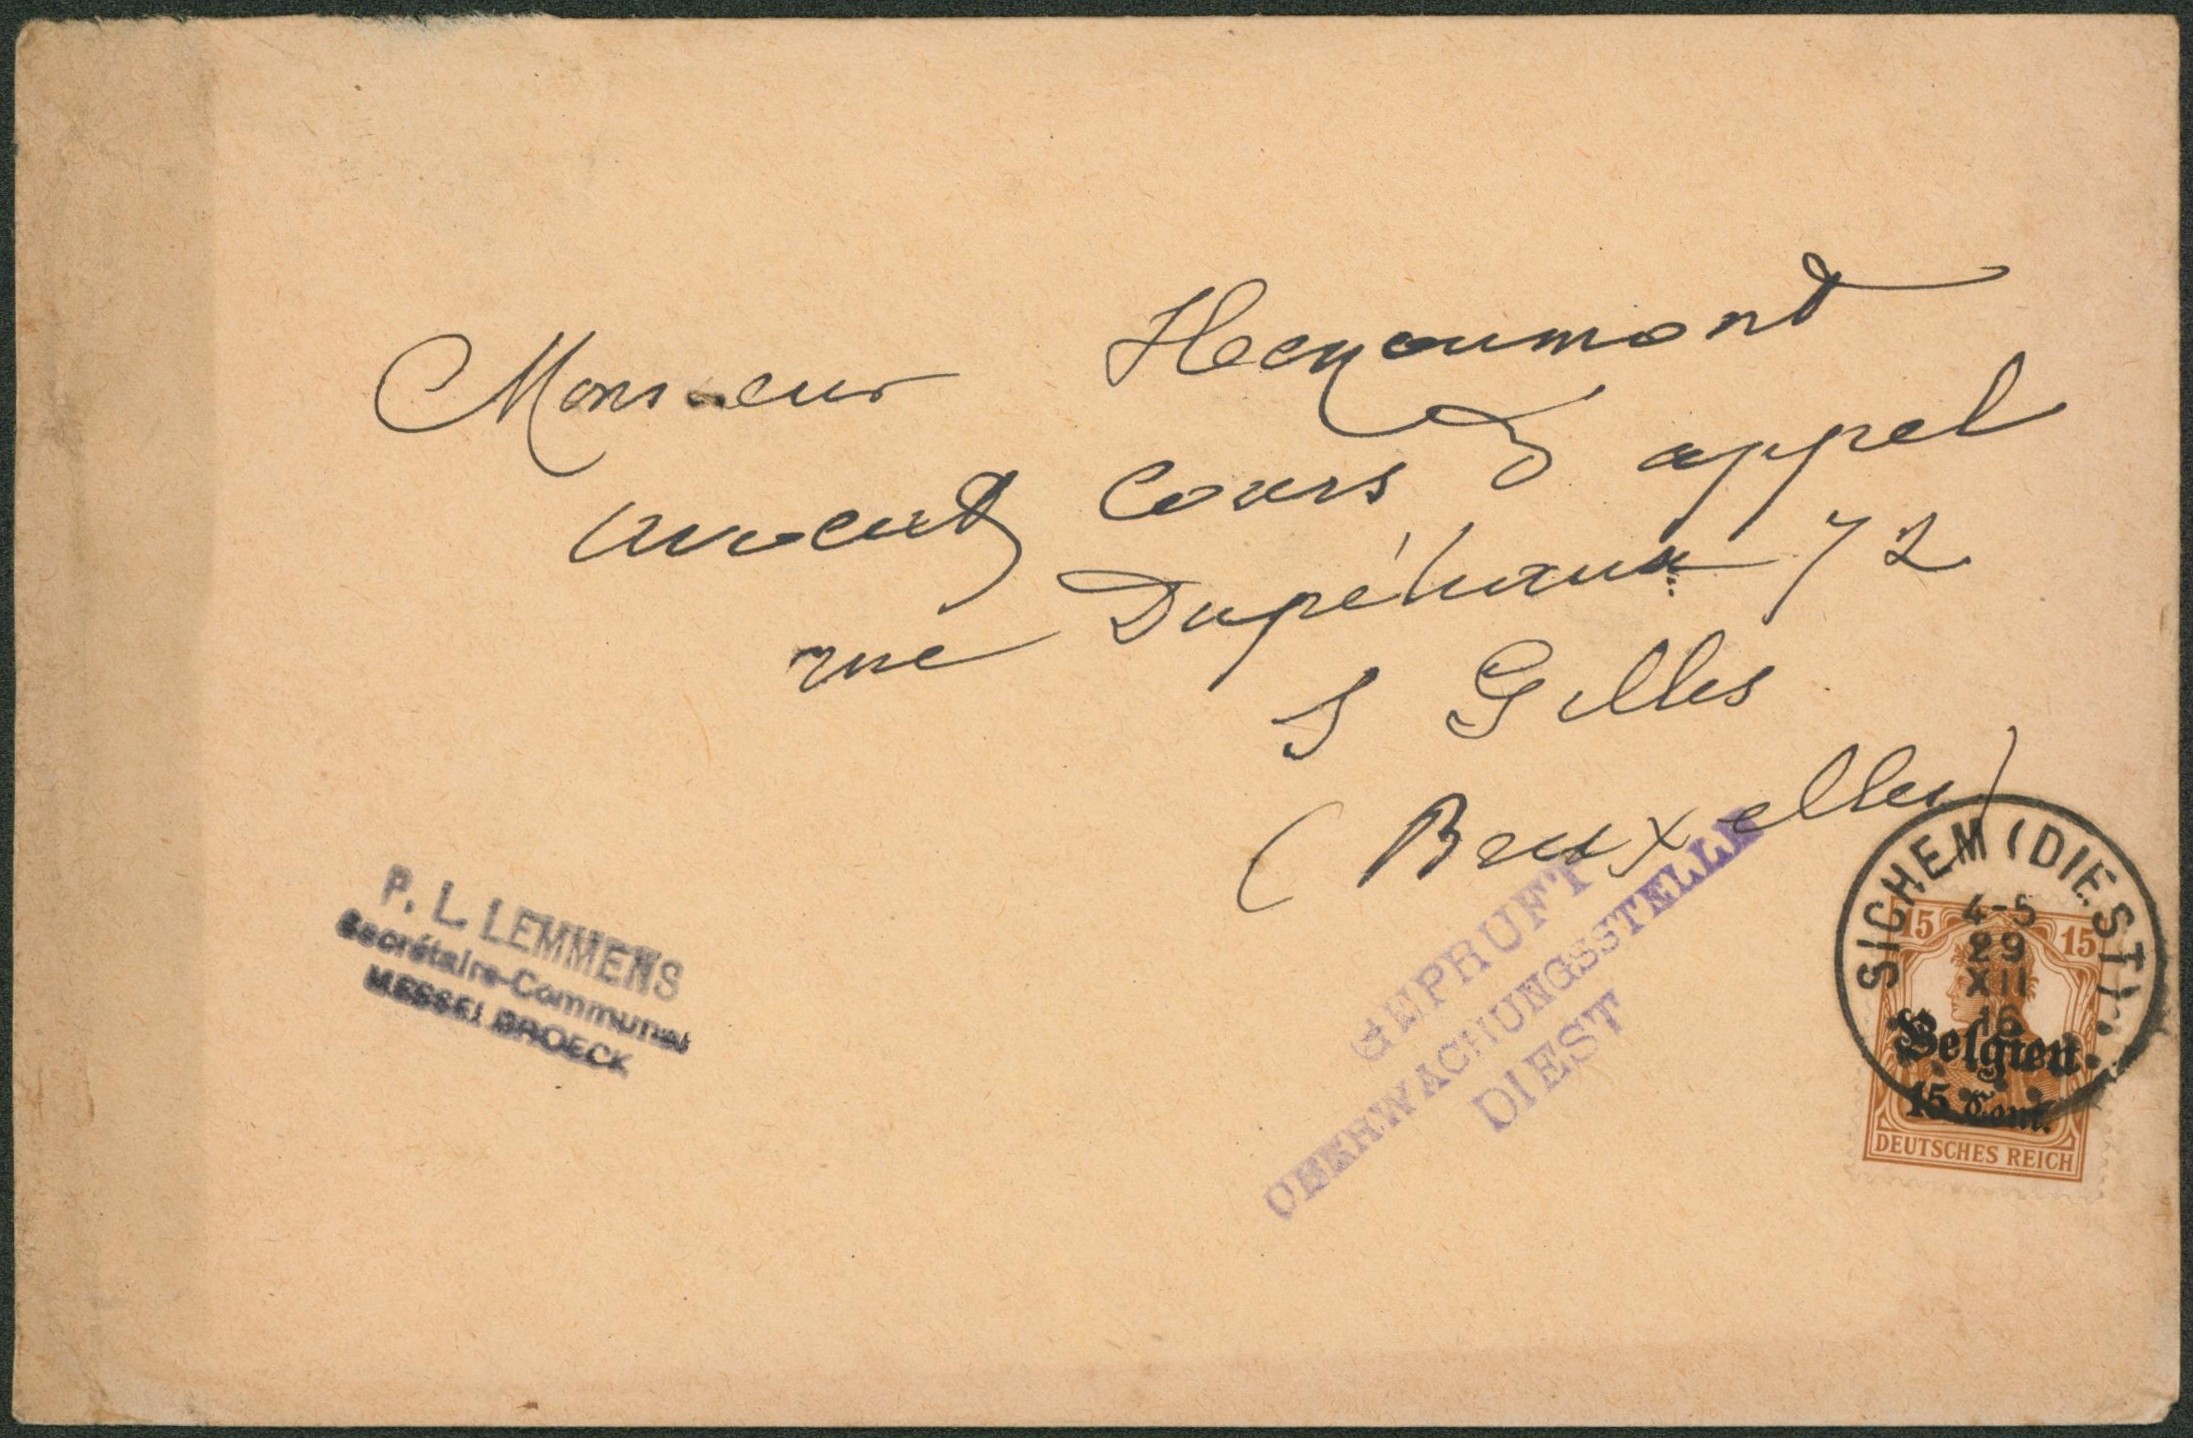 Monsieur Hecqaumont
avocat Cours d appel
rue Dupétiaux 72
S Gilles
(Bruxelles)
P. L. LEMMENS
Secrétaire-Communal
MESSELBROECK
GEPRUFT
UBERWACHUNGSSTELLE
DIEST
SICHEM (DIEST)
4-5
29
XII
16
15 15
Belgien
15 Cent.
DEUTSCHES REICH